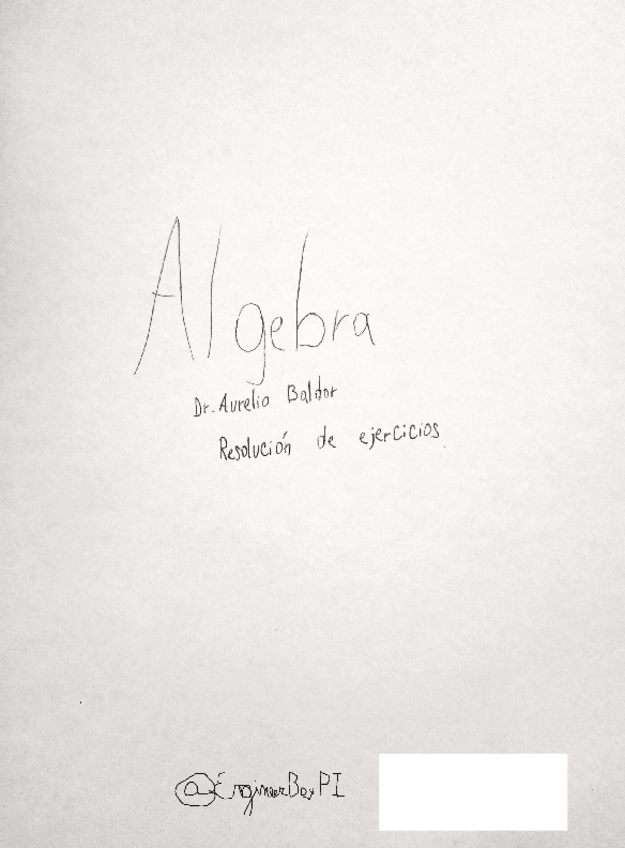 Algebra
Dr. Aurelio Baldor
Resolución de ejercicios